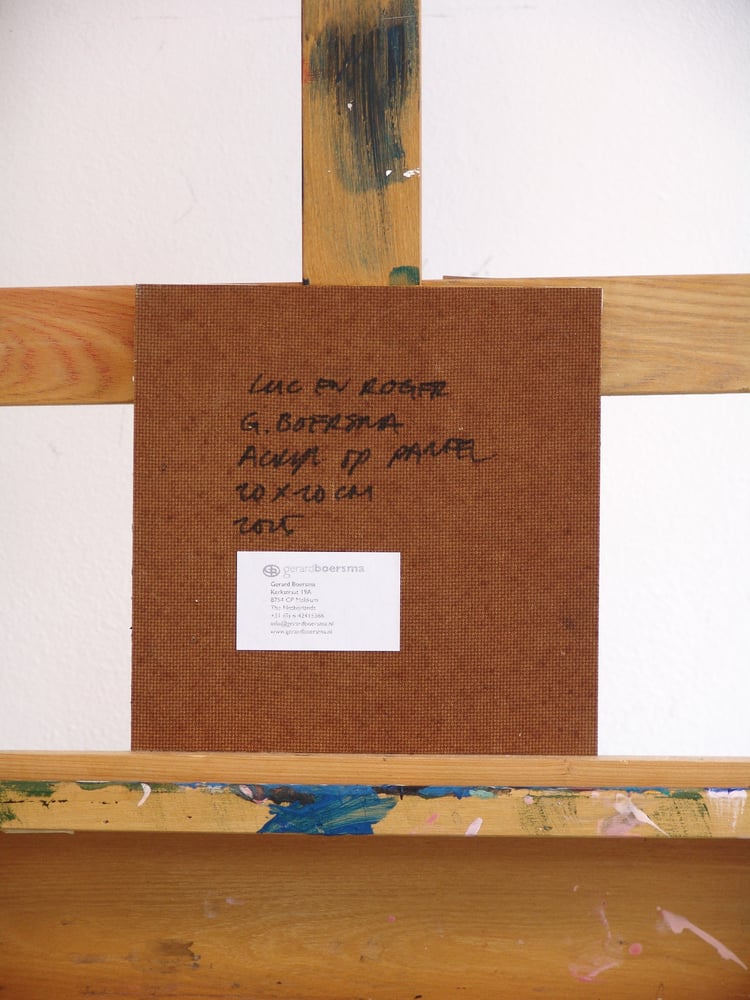 LUC EN ROGER
G. BOERSMA
ACRYL OP PANEEL
20 X 20 CM
2015
gerardboersma
Gerard Boersma
Kerkstraat 19A
8754 CP Makkum
The Netherlands
info@gerardboersma.nl
www.gerardboersma.nl